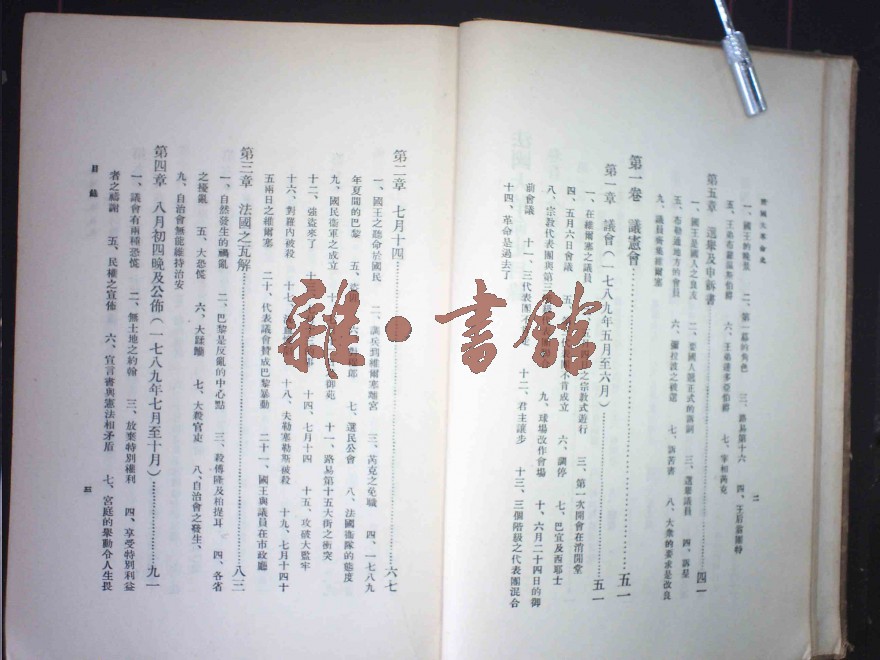 法國大革命史
二
一、國王的晚景 二、第一幕的角色 三、路易第十六 四、王后
五、王弟布羅溫斯伯爵 六、王弟達多亞伯爵 七、宰相芮克
第五章 選舉及申訴書 四一
一、國王是國人之良友 二、要國人說正式的 三、選舉議員 四、訴
五、布勒通地方的會員 六、彌拉波之被選 七、訴苦書 八、大衆的要求是改良
九、議員齊集維爾塞
第一卷 議憲會 五一
第一章 議會(一七八九年五月至六月) 五一
一、在維爾塞之議員 之宗教式遊行 三、第一次開會在消閒堂
四、五月六日會議 五 不肯成立 六、調停 七、巴宜及西耶士
八、宗教代表團與第三 九、球場改作會場 十、六月二十四日的御
前會議 十一、三代表團 十二、君主讓步 十三、三個階級之代表團混合
十四、革命是過去了
第二章 七月十四 六七
一、國王之聽命於國民 二、調兵到維爾塞離宮 三、芮克之免職 四、一七八九
年夏間的巴黎 五、 六、 七、選民公會 八、法國衛隊的態度
九、國民衛軍之成立 十 御苑 十一、路易第十五大街之衝突
十二、強盜來了 十三 十四、七月十四 十五、攻破大監牢
十六、對羅內被殺 十七 十八、夫勒塞勒斯被殺 十九、七月十四十
五兩日之維爾塞 二十、代表議會贊成巴黎暴動 二十一、國王與議員在市政廳
第三章 法國之瓦解 八三
一、自然發生的禍亂 二、巴黎是反亂的中心點 三、殺傅隆及柏提耳 四、各省
之擾亂 五、大恐慌 六、大蹂躪 七、大殺官吏 八、自治會之發生、
九、自治會無能維持治安
第四章 八月初四晚及公佈(一七八九年七月至十月) 九一
一、議會有兩種恐慌 二、無土地之約翰 三、放棄特別權利 四、享受特別利益
者之禱謝 五、民權之宣佈 六、宣言書與憲法相矛盾 七、宮庭的舉動令人生畏
目錄
三
雜·書館